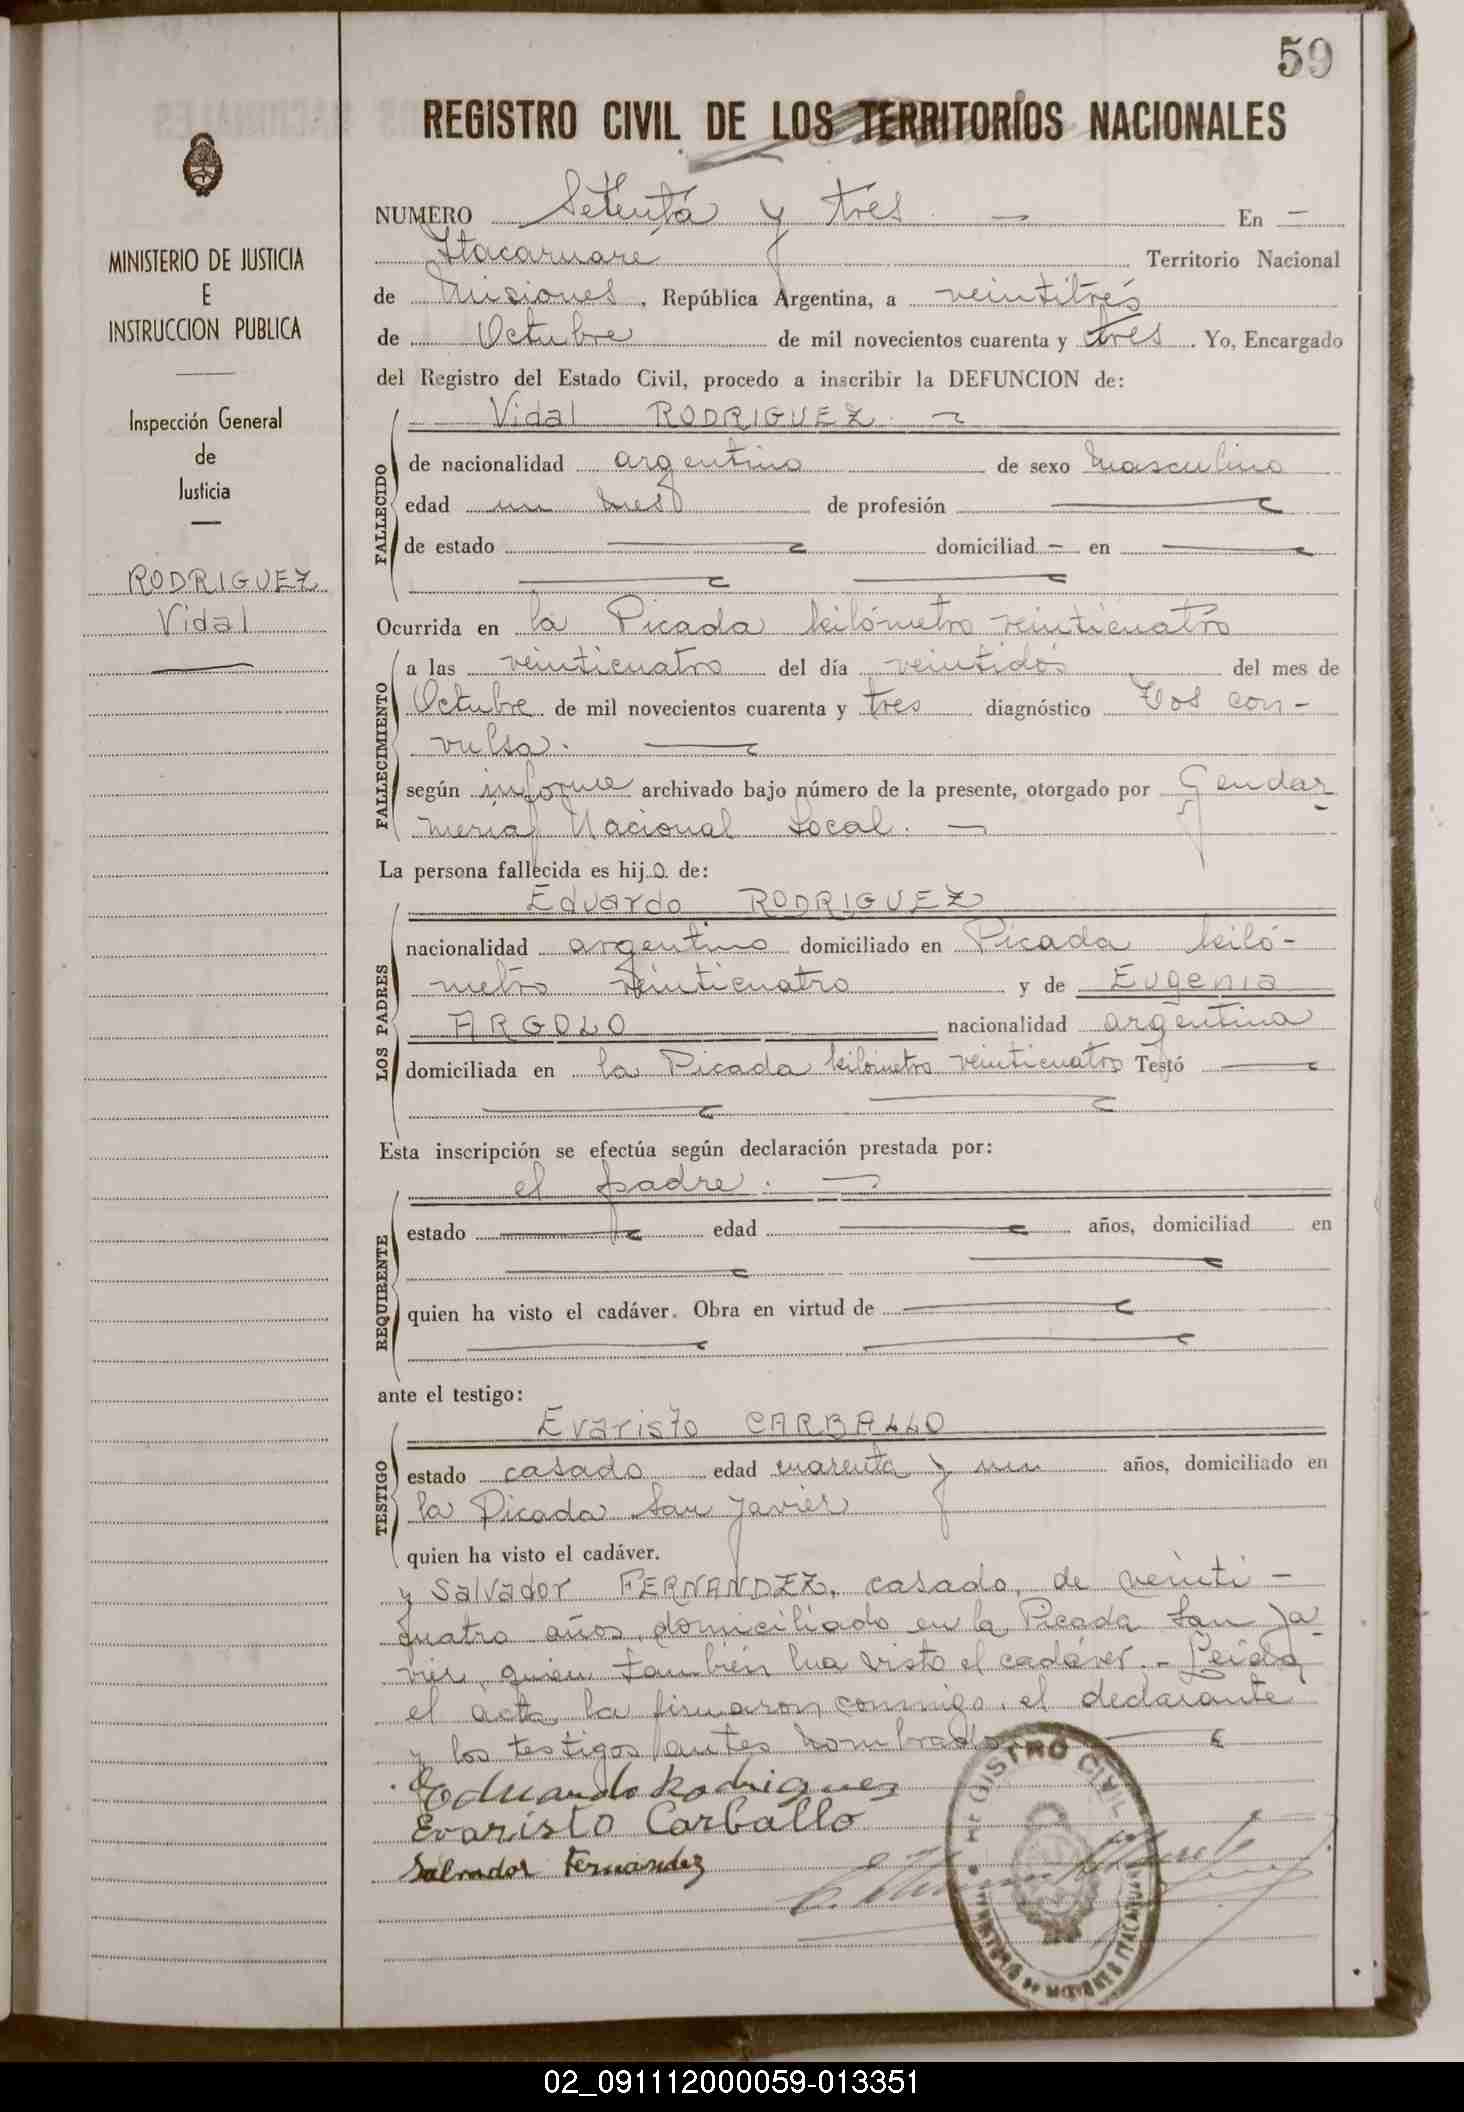 59
REGISTRO CIVIL DE LOS TERRITORIOS NACIONALES
MINISTERIO DE JUSTICIA
E
INSTRUCCION PUBLICA
Inspección General
de
Justicia
RODRIGUEZ
Vidal
NUMERO Setenta y tres En
Itacaruare Territorio Nacional
de Misiones, República Argentina, a veintitrés
de Octubre de mil novecientos cuarenta y tres. Yo, Encargado
del Registro del Estado Civil, procedo a inscribir la DEFUNCION de:
Vidal RODRIGUEZ
FALLECIDO
de nacionalidad argentino de sexo masculino
edad un mes de profesión
de estado domiciliad en
Ocurrida en la Picada kilómetro veinticuatro
FALLECIMIENTO
a las veinticuatro del día veintidós del mes de
Octubre de mil novecientos cuarenta y tres diagnóstico Tos con-
vulsa.
según informe archivado bajo número de la presente, otorgado por Gendar
mería Nacional Local.
La persona fallecida es hijo de:
LOS PADRES
Eduardo RODRIGUEZ
nacionalidad argentino domiciliado en Picada kiló-
metro veinticuatro y de Eugenia
ARGOLO nacionalidad argentina
domiciliada en la Picada kilómetro veinticuatro Testó
Esta inscripción se efectúa según declaración prestada por:
REQUIRENTE
el padre.
estado edad años, domiciliad en
quien ha visto el cadáver. Obra en virtud de
ante el testigo:
TESTIGO
Evaristo CARBALLO
estado casado edad cuarenta y un años, domiciliado en
la Picada San Javier
quien ha visto el cadáver.
y Salvador FERNANDEZ, casado, de veinti-
cuatro años, domiciliado en la Picada San Ja
vier, quien también ha visto el cadáver.- Leída
el acta la firmaron conmigo, el declarante
y los testigos antes nombrados
Eduardo Rodriguez
Evaristo Carballo
Salvador Fernandez
REGISTRO CIVIL
TERRITORIO DE MISIONES ITACARUARE
02_091112000059-013351